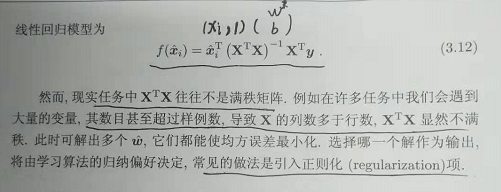 线性回归模型为
(xi,1) (w* b)
f(x̂ᵢ) = x̂ᵢᵀ (XᵀX)⁻¹ Xᵀy . (3.12)
然而, 现实任务中 XᵀX 往往不是满秩矩阵. 例如在许多任务中我们会遇到
大量的变量, 其数目甚至超过样例数, 导致 X 的列数多于行数, XᵀX 显然不满
秩. 此时可解出多个 ŵ, 它们都能使均方误差最小化. 选择哪一个解作为输出,
将由学习算法的归纳偏好决定, 常见的做法是引入正则化 (regularization)项.